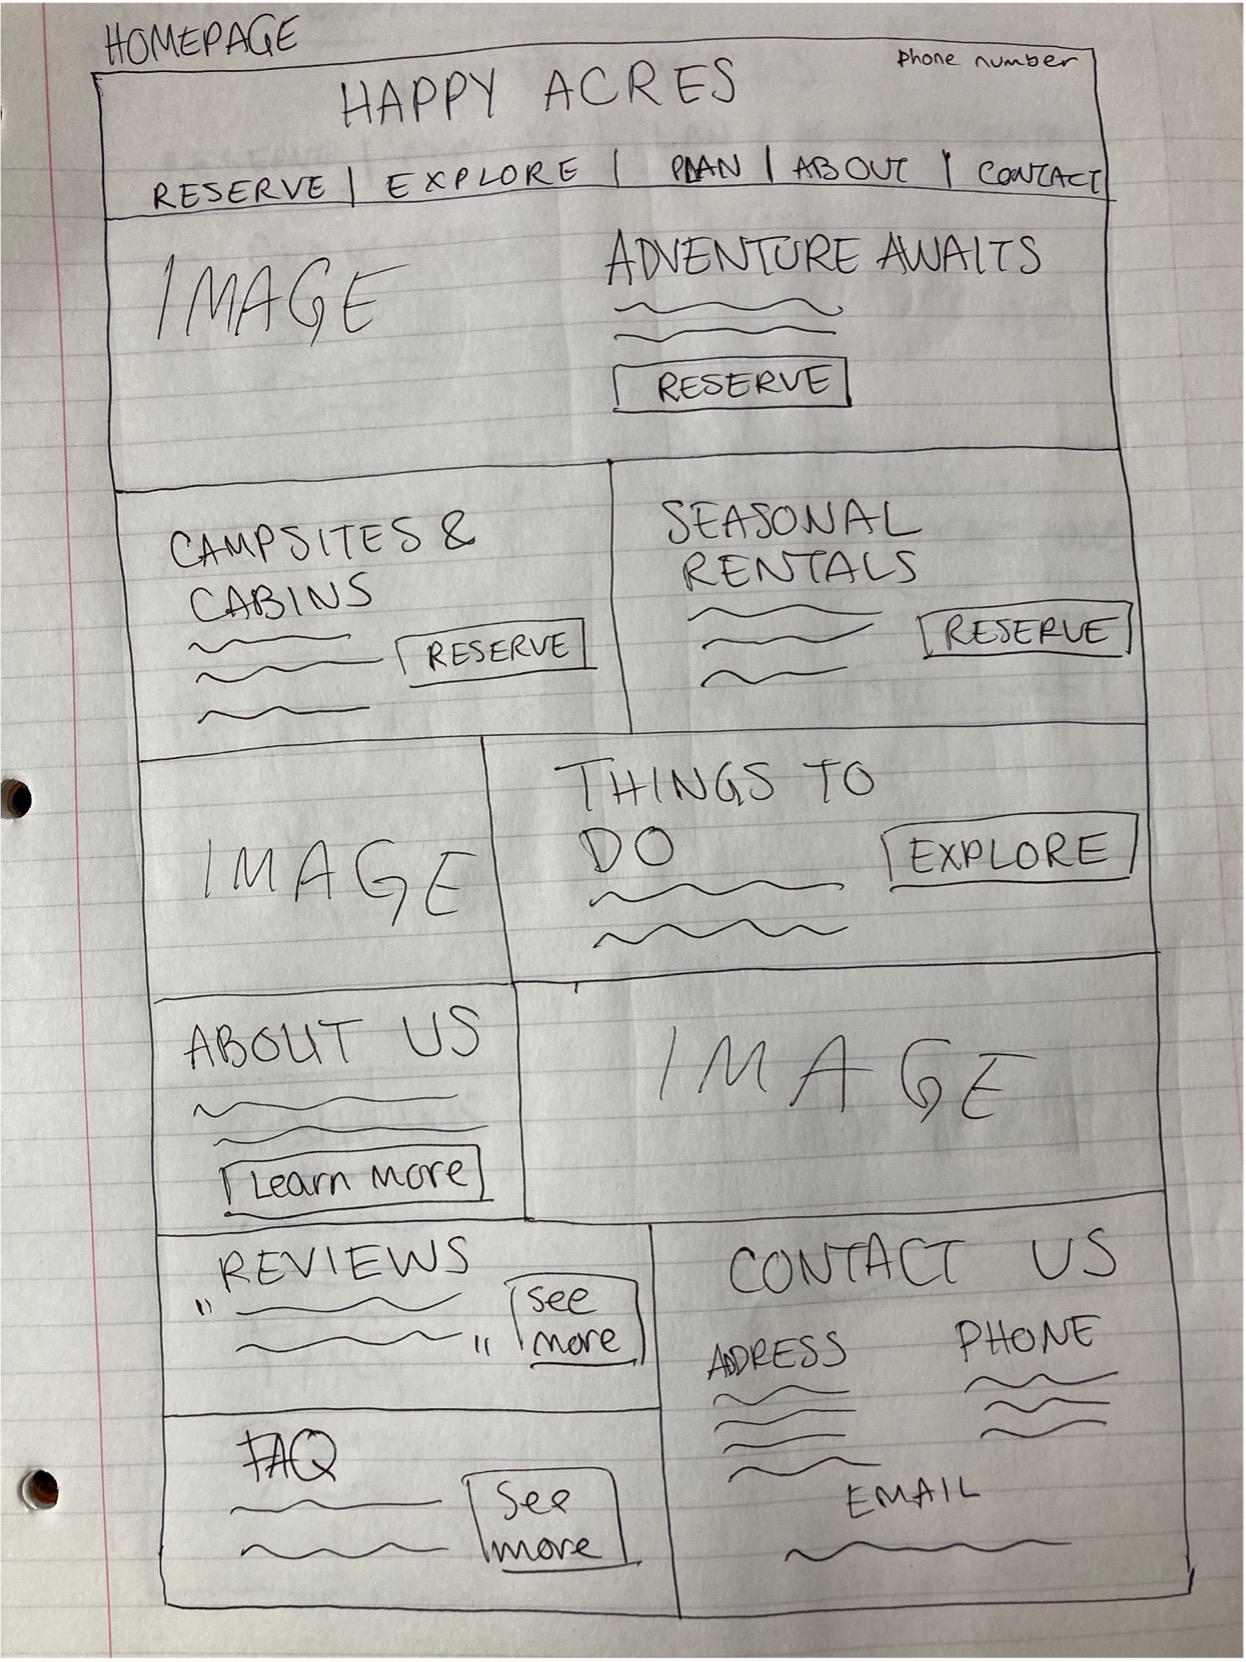 HOMEPAGE
Phone number
HAPPY ACRES
RESERVE | EXPLORE | PLAN | ABOUT | CONTACT
IMAGE
ADVENTURE AWAITS
RESERVE
CAMPSITES &
CABINS
RESERVE
SEASONAL
RENTALS
RESERVE
IMAGE
THINGS TO
DO
EXPLORE
ABOUT US
Learn More
IMAGE
REVIEWS
" "
See
more
FAQ
See
more
CONTACT US
ADDRESS
PHONE
EMAIL